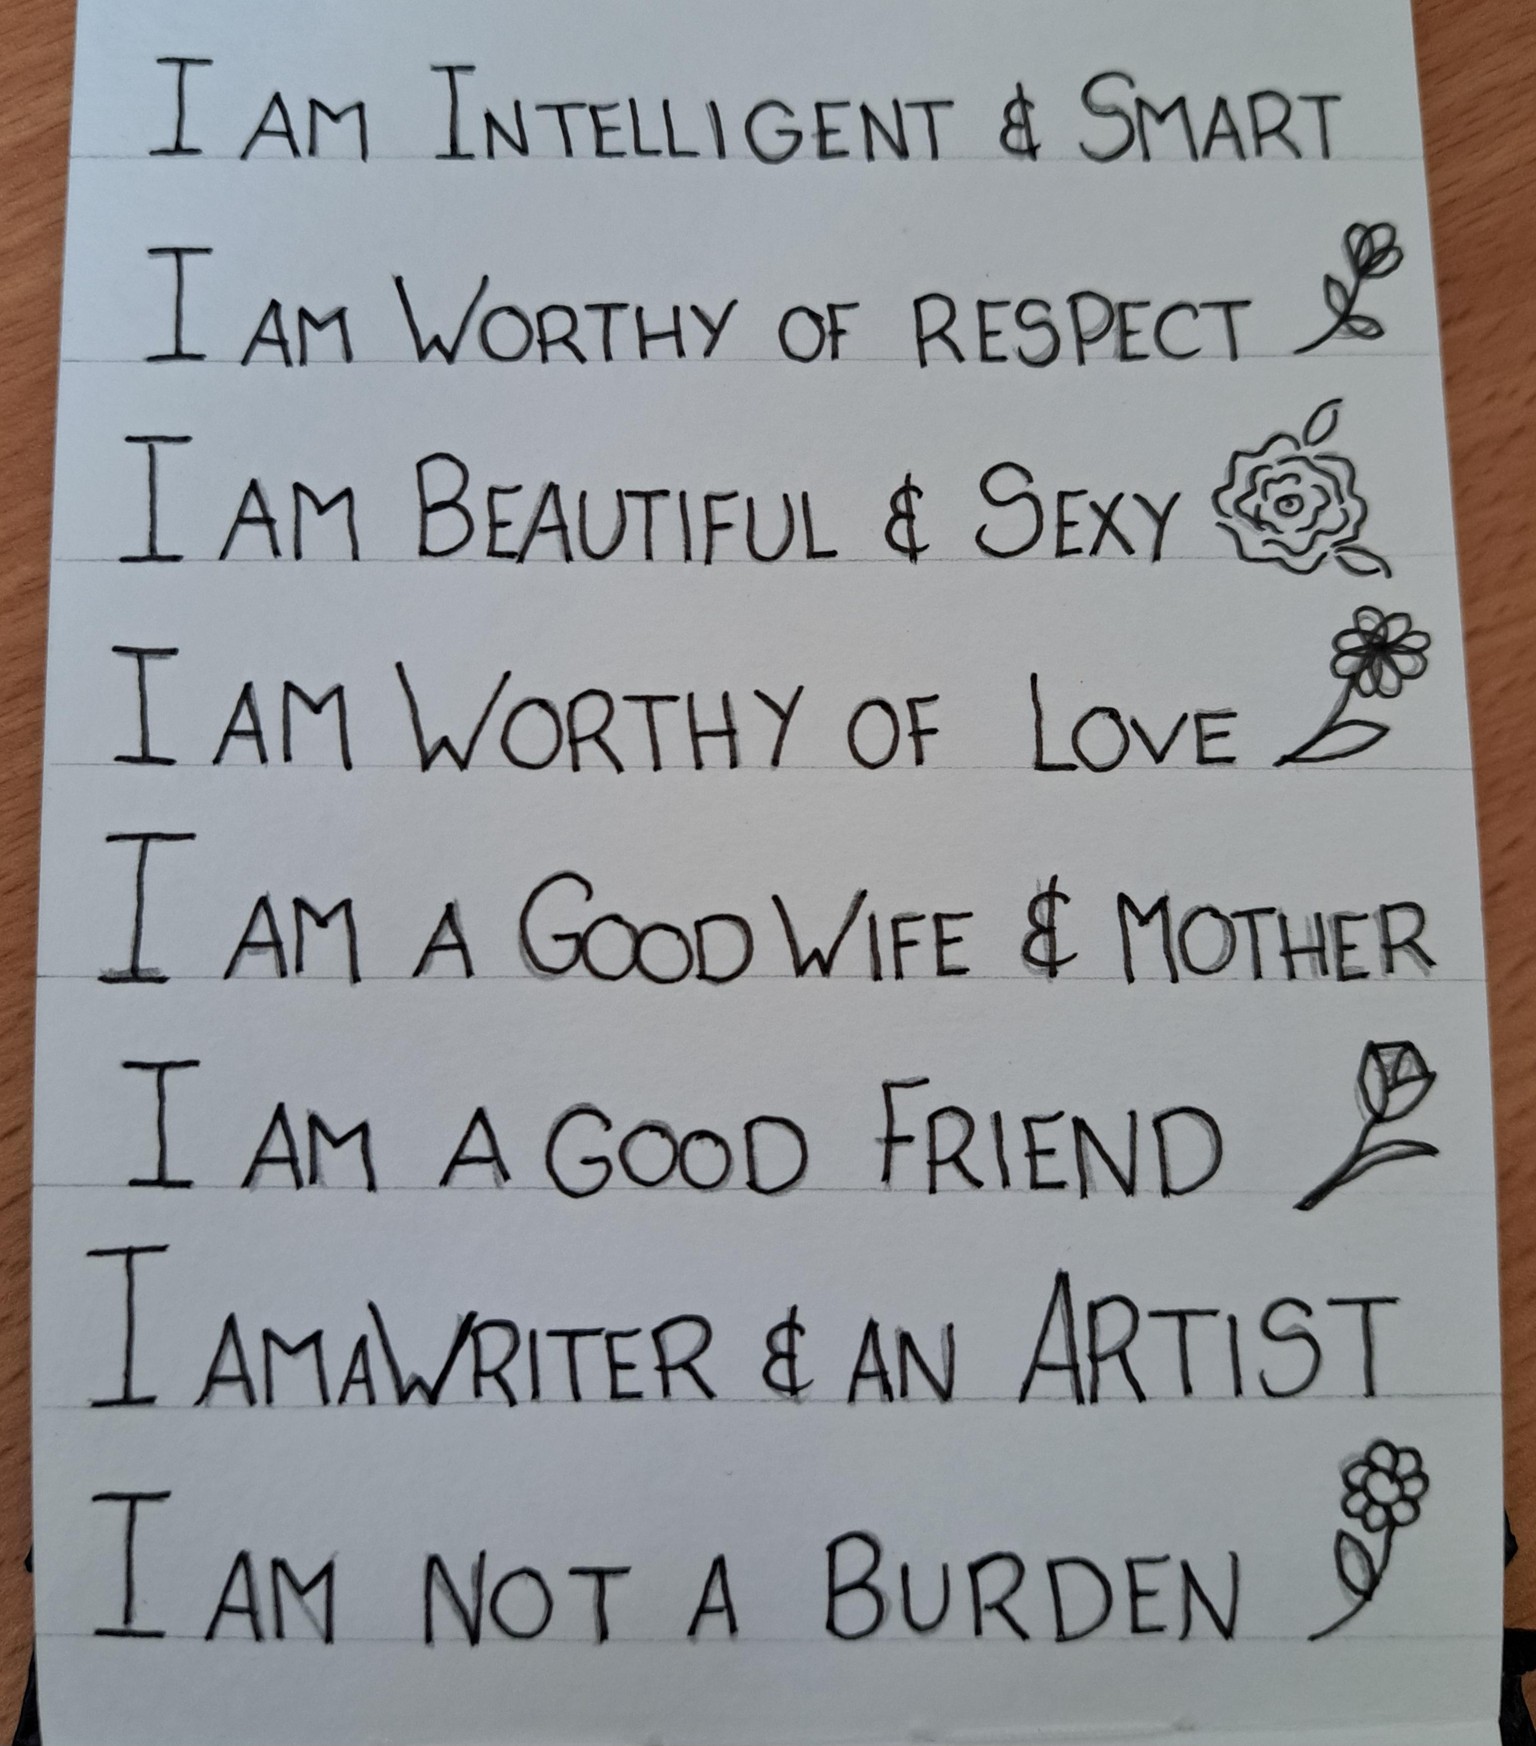 I AM INTELLIGENT & SMART
I AM WORTHY OF RESPECT
I AM BEAUTIFUL & SEXY
I AM WORTHY OF LOVE
I AM A GOOD WIFE & MOTHER
I AM A GOOD FRIEND
I AM A WRITER & AN ARTIST
I AM NOT A BURDEN